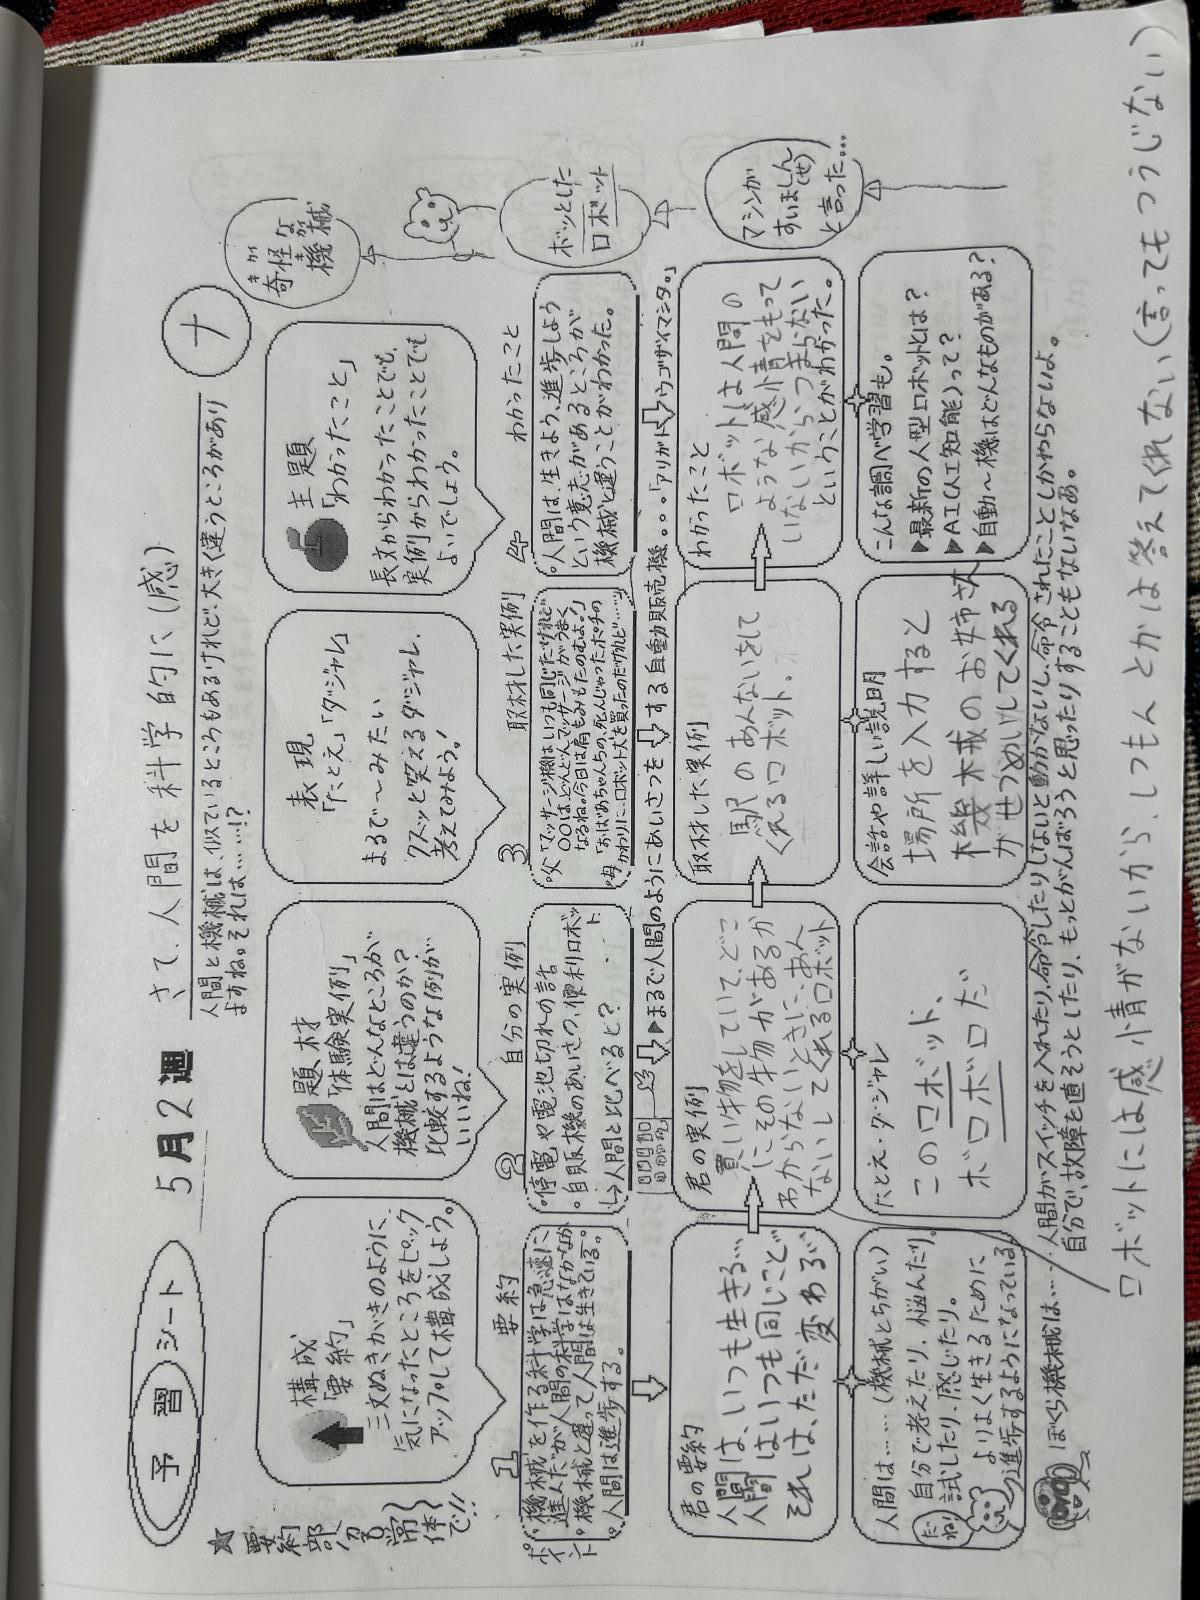 予習シート
5月2週
さて、人間を科学的に(感)
ナ
人間と機械は、似ているところもあるけれど、大きく違うところがあり
ますね。それは……!?
★要約部分も常体で!!
構成
「要約」
三文ぬきがきのように
気になったところをピック
アップして構成しよう。
題材
「体験実例」
人間はどんなところが
機械とは違うのか?
比較するような例が
いいね!
表現
「たとえ」「ダジャレ」
まるで〜みたい
クスッと笑えるダジャレ、
考えてみよう!
主題
「わかったこと」
長文からわかったことでも、
実例からわかったことでも
よいでしょう。
奇怪な
きかい
機械
きかい
ボッとした
ロボット
マシンが
すいましん
(せ)
と言った…
1 要約
ポイント
・機械を作る科学は急速に
進んだが人間の科学はなかなか
・機械と違って人間は生きている。
・人間は進歩する。
2 自分の実例
・停電や電池切れの話
・自販機のあいさつ、便利ロボット
↳人間と比べると?
3 取材した実例
・父「マッサージ機はいつも同じだけれど
〇〇は、どんどんマッサージがうまく
なるね。今日は肩もみもたのむよ。」
・母「おばあちゃんちの、死んじゃったポチの
かわりに、ロボット犬を買ったのだけれど……
4 わかったこと
・人間は、生きよう、進歩しよう
という意志があるところが
機械と違うことがわかった。
▶まるで人間のようにあいさつをする自動販売機。。。「アリガトウゴザイマシタ。」
君の要約
人間は、いつも生きる…
人間はいつも同じことで
それは、ただ変わるい
君の実例
買い物をしていて、どこ
にその物があるか
わからないときに、あん
ないしてくれるロボット
取材した実例
駅のあんないをして
くれるロボット。
わかったこと
ロボットは人間の
ような感情をもって
いないから、つまらない
ということがわかった。
人間は……(機械とちがい)
自分で考えたり、悩んだり、
試したり、感じたり。
よりよく生きるために
進歩するようになっている。
だね!
たとえ・ダジャレ
このロボット、
ボロボロだ
会話や詳しい説明
場所を入力すると
機械のお姉さん
がせつめいしてくれる
こんな調べ学習も。
▶最新の人型ロボットとは?
▶AI(人工知能)って?
▶自動〜機はどんなものがある?
ぼくら機械は……人間がスイッチを入れたり、命令したりしないと動かないし、命令されたことしかわからないよ。
自分で、故障を直そうとしたり、もっとがんばろうと思ったりすることもないなあ。
ロボットには感情がないから、しつもんとかは答えてくれない(言ってもつうじない)